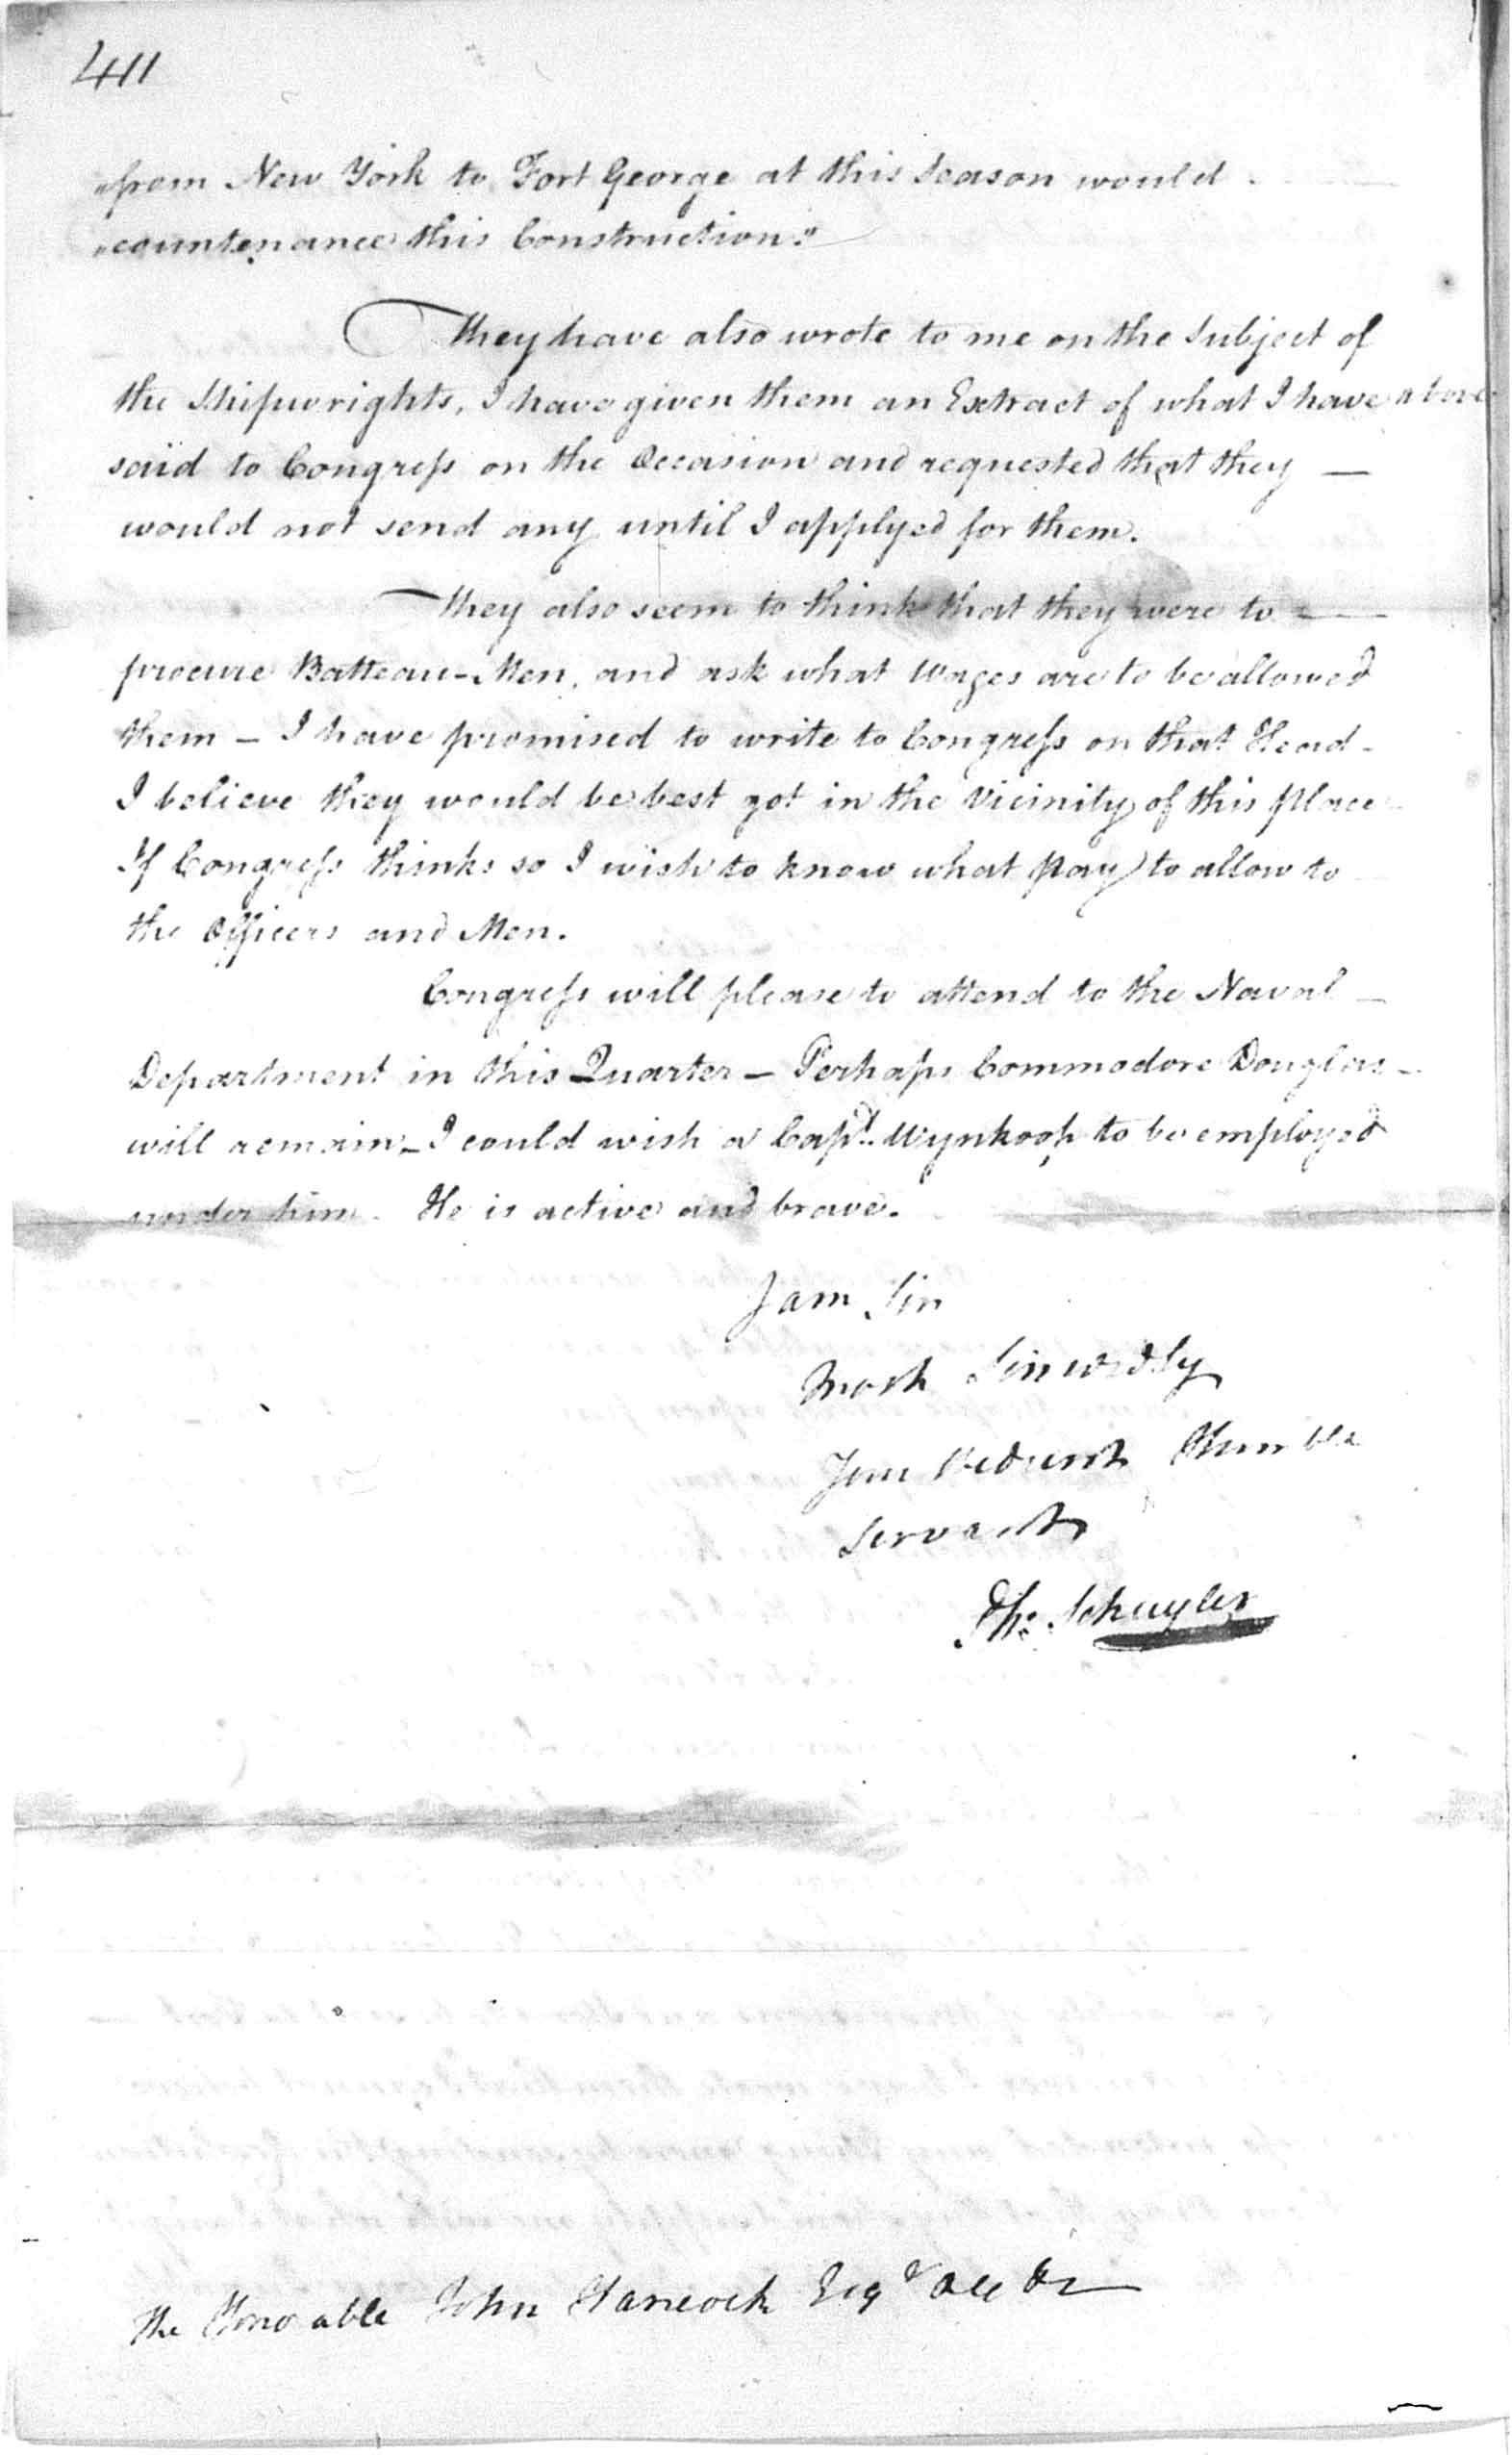 411
"from New York to Fort George at this Season would
"countenance this Construction."
They have also wrote to me on the Subject of
the Shipwrights, I have given them an Extract of what I have above
said to Congress on the Occasion and requested that they —
would not send any until I applyed for them.
They also seem to think that they were to —
procure Batteau-Men, and ask what Wages are to be allowed
them – I have promised to write to Congress on that Head –
I believe they would be best got in the Vicinity of this place
If Congress thinks so I wish to know what pay to allow to
the Officers and Men.
Congress will please to attend to the Naval –
Department in this Quarter – Perhaps Commodore Douglas –
will remain – I could wish a Capt. Wynkoop to be employed
under him. He is active and brave.
I am Sir
Most Sincerely
Your Obedient Humble
Servant
Ph: Schuyler
The Honorable John Hancock Esqr &c &c